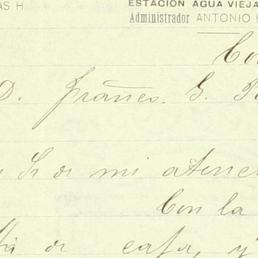 AS H
ESTACIÓN AGUA VIEJA
Administrador ANTONIO
D. Franco. G.
Sr de mi atenc
Con la
de casa, y